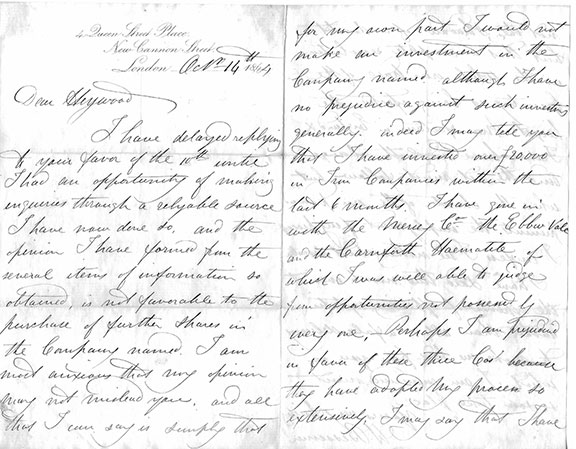 4 Queen Street Place
New Cannon Street
London Octr. 14th 1864
Dear Heywood
I have delayed replying
to your favor of the 10th until
I had an opportunity of making
inqueries through a relyable source
I have now done so, and the
opinion I have formed from the
several items of information so
obtained, is not favorable to the
purchase of further shares in
the Company named. I am
most anxious that my opinion
may not mislead you, and all
that I can say is simply that
for my own part I would not
make an investment in the
Company named although I have
no prejudice against such investing
generally. indeed I may tell you
that I have invested over £20000
in Iron Companies within the
last 6 months. I have gone in
with the Mersey Co. the Ebbw Vale
and the Carnforth Haematite of
which I was well able to judge
from opportunities not possessed by
every one. Perhaps I am prejudiced
in favor of these three Cos. because
they have adopted my process so
extensively. I may say that I have